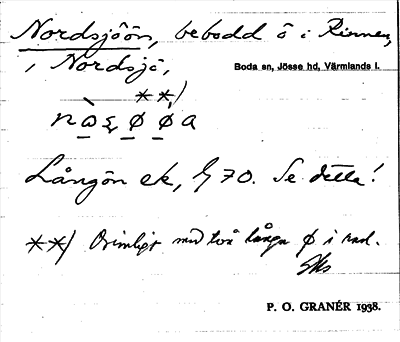 Nordsjöön, bebodd ö i Rinnen,
i Nordsjö,
Boda sn, Jösse hd, Värmlands l.
**)
Långön ek, 70. Se detta!
**) Orimligt med två långa ø i rad.
P. O. GRANÉR 1938.